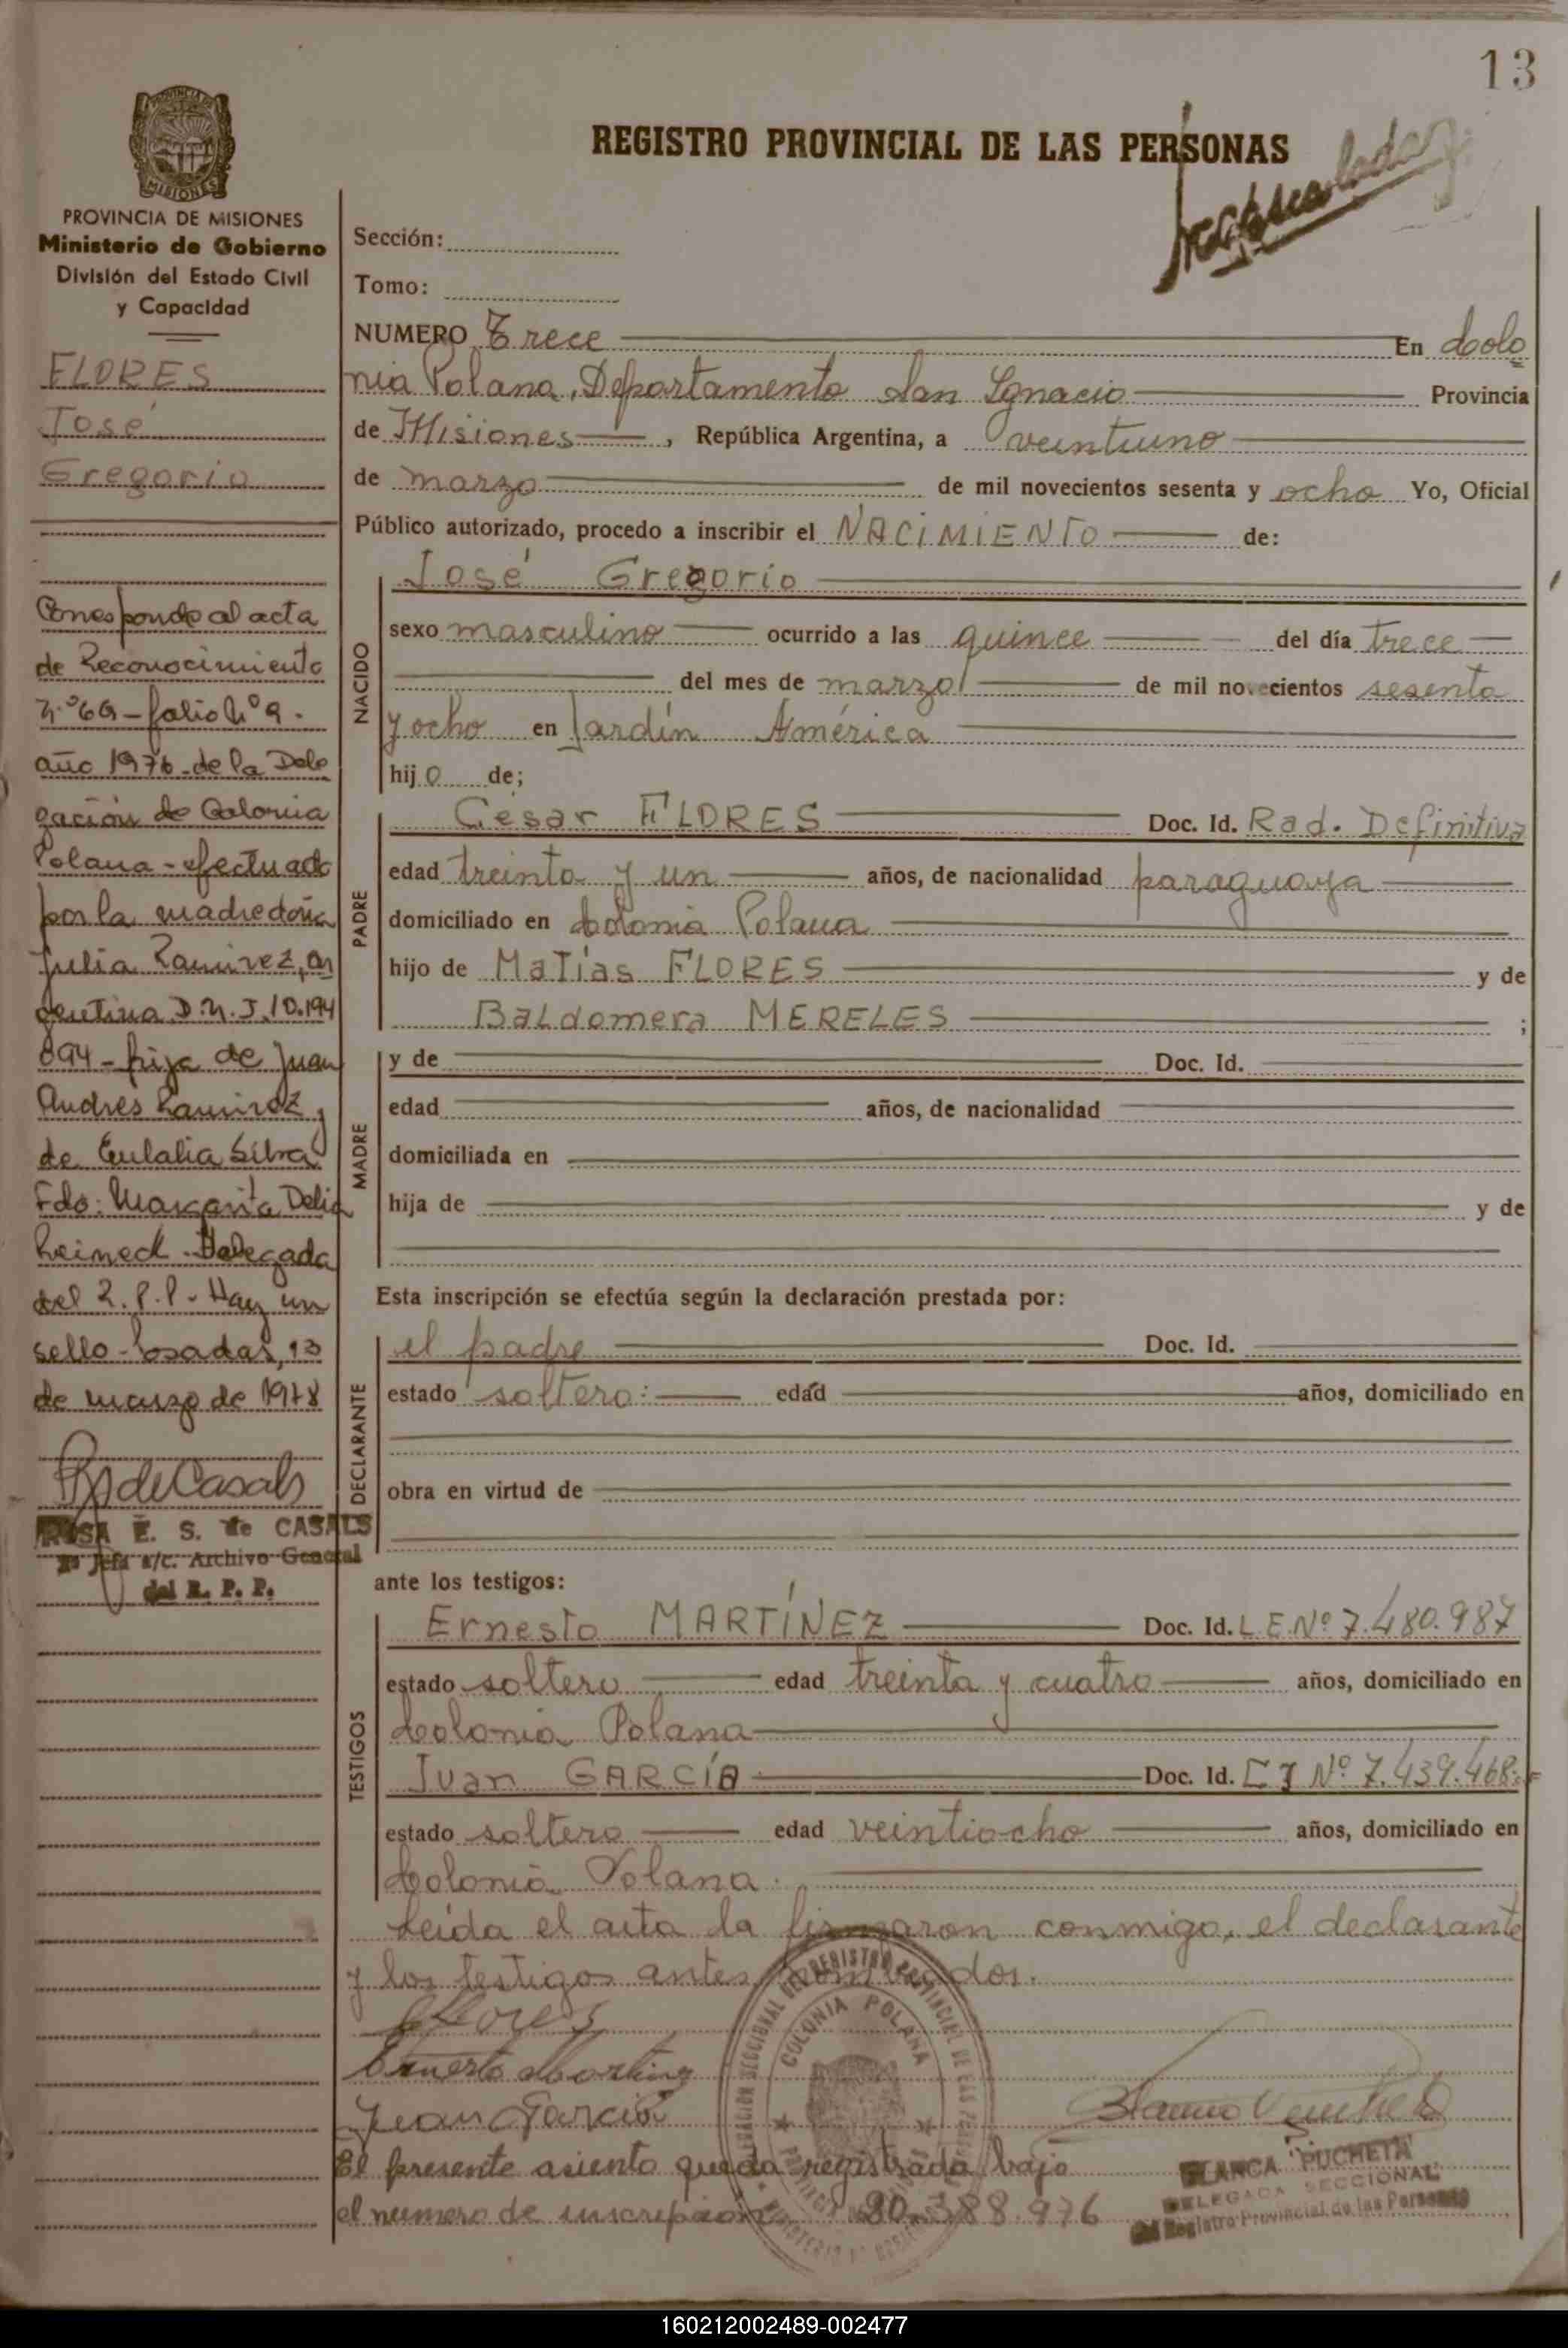 13
REGISTRO PROVINCIAL DE LAS PERSONAS
MISIONES
PROVINCIA DE MISIONES
Ministerio de Gobierno
División del Estado Civil
y Capacidad
FLORES
José
Gregorio
Corresponde al acta
de Reconocimiento
Nº 69 - folio Nº 9.
año 1976 - de la Dele
gación de Colonia
Polana - efectuado
por la madre doña
Julia Ramirez, ar
gentina D.N.I. 10.194
894 - hija de Juan
Andres Ramirez y
de Eulalia Silva
Fdo: Margarita Delia
Reineck - Delegada
del R.P.P. - Hay un
sello - Posadas, 13
de marzo de 1978
ROSA E. S. de CASALS
a/c. Archivo General
del R. P. P.
Sección:
Tomo:
NUMERO Trece En Colo
nia Polana, Departamento San Ignacio Provincia
de Misiones, República Argentina, a veintiuno
de marzo de mil novecientos sesenta y ocho Yo, Oficial
Público autorizado, procedo a inscribir el NACIMIENTO de:
NACIDO
José Gregorio
sexo masculino ocurrido a las quince del día trece
del mes de marzo de mil novecientos sesenta
y ocho en Jardín América
hijo de;
PADRE
César FLORES Doc. Id. Rad. Definitiva
edad treinta y un años, de nacionalidad paraguaya
domiciliado en Colonia Polana
hijo de Matías FLORES y de
Baldomera MERELES ;
MADRE
y de Doc. Id.
edad años, de nacionalidad
domiciliada en
hija de y de
Esta inscripción se efectúa según la declaración prestada por:
DECLARANTE
el padre Doc. Id.
estado soltero: edad años, domiciliado en
obra en virtud de
ante los testigos:
TESTIGOS
Ernesto MARTÍNEZ Doc. Id. L.E.Nº 7.480.987
estado soltero edad treinta y cuatro años, domiciliado en
Colonia Polana
Juan GARCÍA Doc. Id. C I Nº 7.439.468
estado soltero edad veintiocho años, domiciliado en
Colonia Polana.
Leída el acta la firmaron conmigo, el declarante
y los testigos antes nombrados.
CFlores
Ernesto Martinez
Juan Garcia
COLONIA POLANA
El presente asiento queda registrado bajo
el numero de inscripción 20.388.976
BLANCA PUCHETA
DELEGADA SECCIONAL
del Registro Provincial de las Personas
160212002489-002477